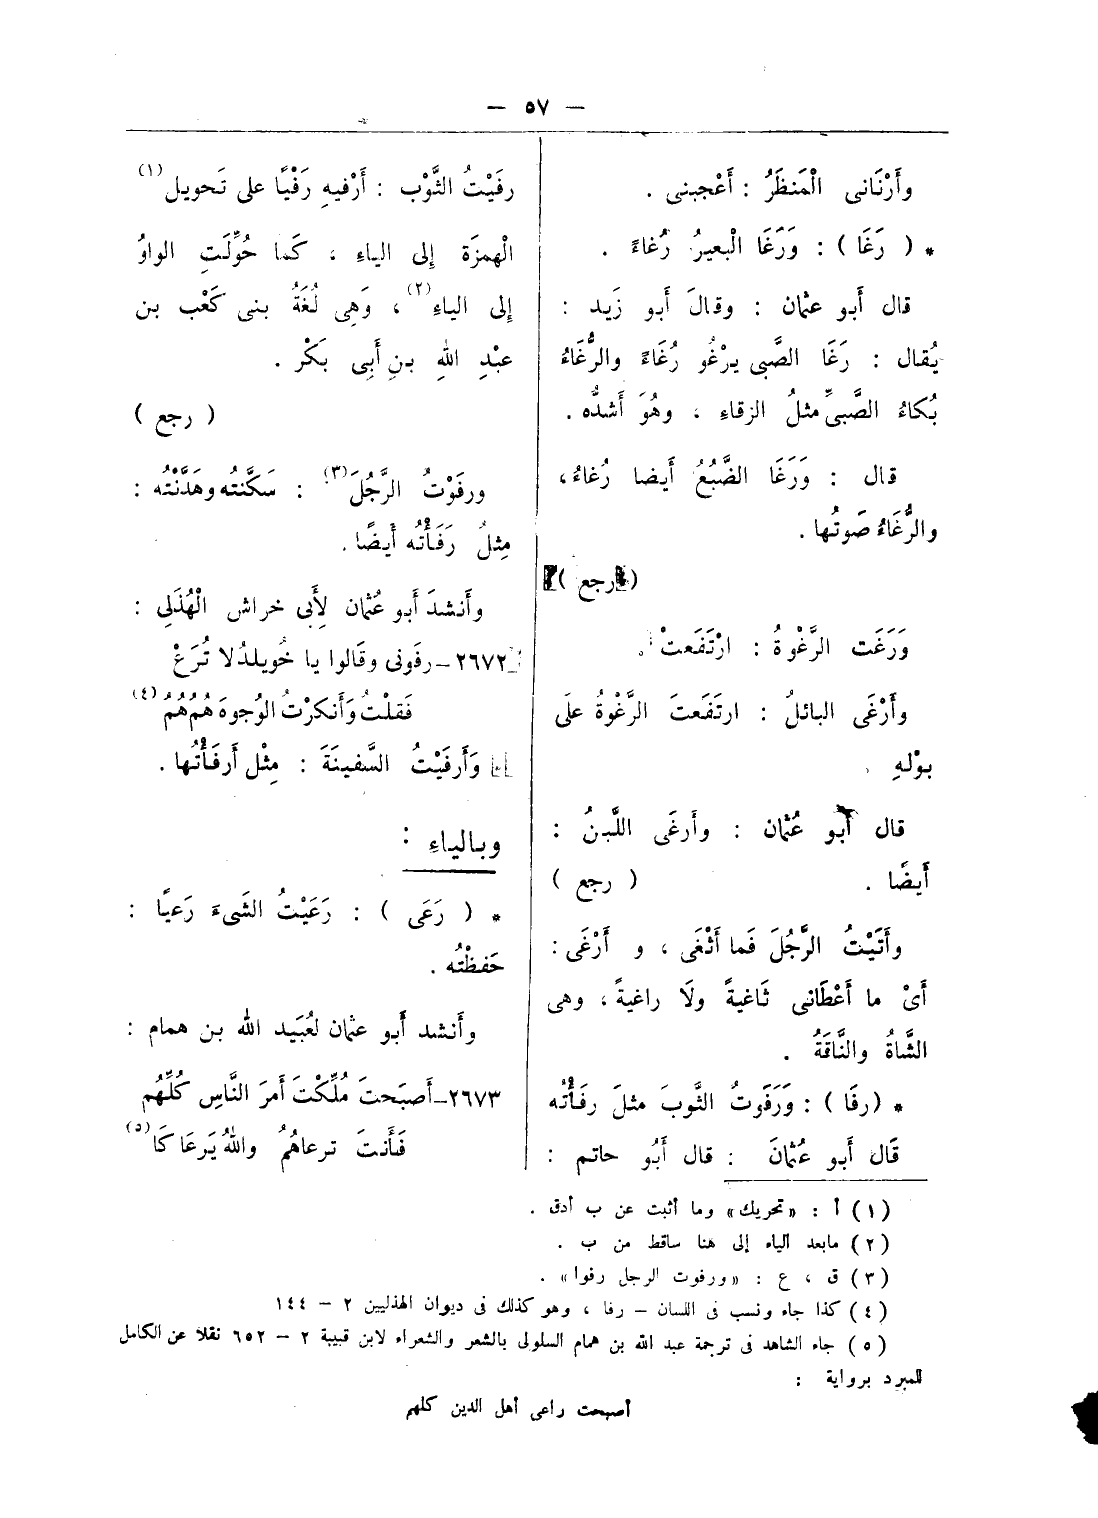 — ٥٧ —
وأَرْنَانى الْمَنظَرُ : أَعْجبنى .
* ( رَغَا ) : وَرَغَا الْبعيرُ رُغاءً .
قال أَبو عثمان : وقالَ أَبو زَيد :
يُقال : رَغَا الصَّبى يرْغُو رُغَاءً والرُّغَاءُ
بُكاءُ الصَّبىِّ مثلُ الزقاءِ ، وهُوَ أَشدُّه .
قال : وَرَغَا الضَّبُعُ أَيضا رُغاءُ ،
والرُّغَاءُ صَوتُها .
( رجع )
وَرَغَت الرَّغْوةُ : ارْتَفَعتْ .
وأَرْغَى البائلُ : ارتَفَعتَ الرَّغْوةُ علَى
بوْلهِ .
قال أَبو عُثمان : وأَرغَى اللَّبنُ :
أَيضًا . ( رجع )
وأَتَيْتُ الرَّجُلَ فَما أَثْغَى ، و أَرْغَى :
أَىْ ما أَعْطَانى ثَاغيةً ولَا راغيةً ، وهى
الشَّاةُ والنَّاقَةُ .
* (رفَا ) : وَرَفَوتُ الثَّوبَ مثلَ رفَأْتُه
قَالَ أَبو عُثمَانَ : قال أَبُو حاتم :
رفَيْتُ الثَّوْب : أَرْفيهِ رَفْيًا على تَحويل (١)
الْهمزَة إِلى الياءِ ، كَما حُوِّلَتِ الواوُ
إِلى الياءِ (٢) ، وَهِى لُغَةُ بنى كَعْب بن
عبْدِ اللهِ بنِ أَبِى بَكْر .
( رجع )
ورفَوْتُ الرَّجُلَ (٣) : سَكَّنتُه وهَدَّنْتُه :
مِثلُ رَفَأْتُه أَيضًا .
وأَنشدَ أَبو عُثمان لِأَبى خراش الْهُذَلِى :
٢٦٧٢ – رفَونى وقَالوا يا خُويلدُ لا تُرَعْ
فَقلْتُ وَأَنكرْتُ الوُجوهَ هُمُ هُمُ (٤)
وَأَرفَيْتُ السَّفينَةَ : مِثْل أَرفَأْتُها .
وبالياءِ :
* ( رَعَى ) : رَعَيْتُ الشَىءَ رَعيًا :
حَفظْتُه .
وأَنشد أَبو عثمان لعُبَيد الله بن همام :
٢٦٧٣ – أَصبَحتَ مُلِّكْتَ أَمرَ النَّاسِ كُلِّهُم
فَأَنتَ ترعاهُمُ واللهُ يَرعَاكَا (٥)
(١) أ : «تحريك» وما أثبت عن ب أدق .
(٢) مابعد الياء إلى هنا ساقط من ب .
(٣) ق ، ع : «ورفوت الرجل رفوا» .
(٤) كذا جاء ونسب فى اللسان – رفا ، وهو كذلك فى ديوان الهذليين ٢ – ١٤٤
(٥) جاء الشاهد فى ترجمة عبد الله بن همام السلولى بالشعر والشعراء لابن قبيبة ٢ – ٦٥٢ نقلا عن الكامل
للمبرد برواية :
أصبحت راعى أهل الدين كلهم